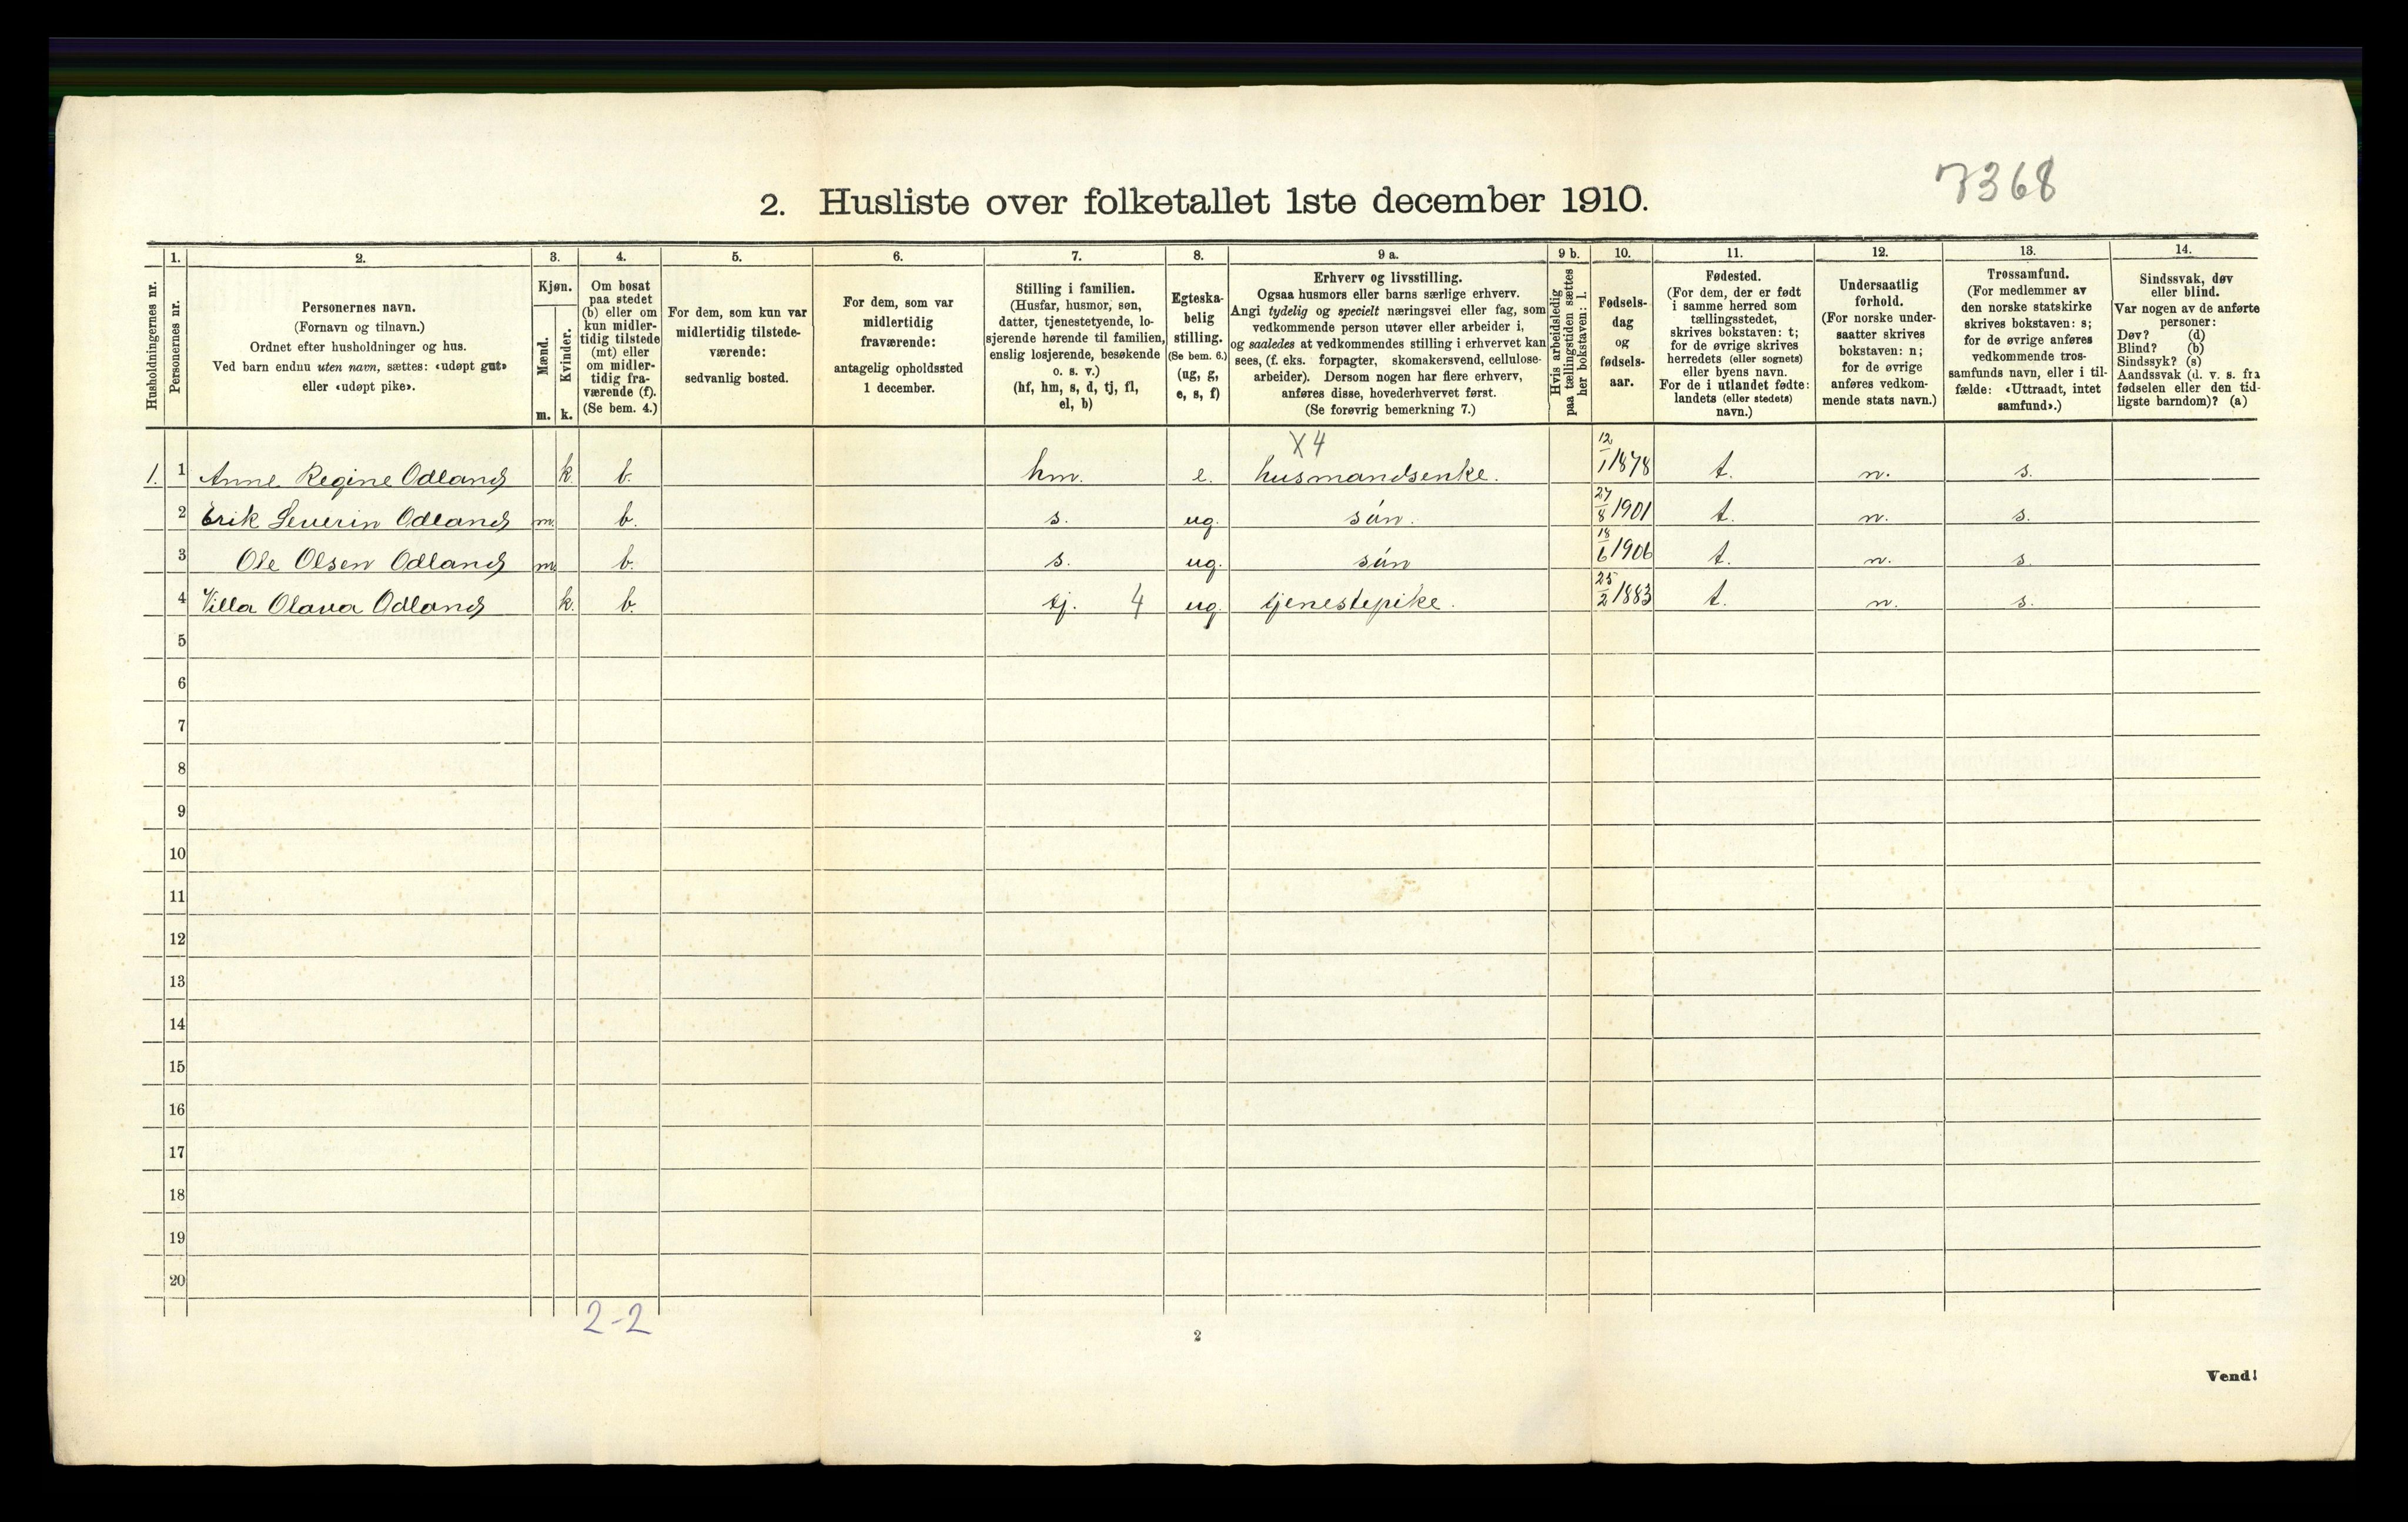 7368
2. Husliste over folketallet 1ste december 1910.
Husholdningernes nr.
1.
Personernes nr.
2.
Personernes navn.
(Fornavn og tilnavn.)
Ordnet efter husholdninger og hus.
Ved barn endnu uten navn, sættes: «udøpt gut»
eller «udøpt pike».
3.
Kjøn.
Mænd.
m.
Kvinder.
k.
4.
Om bosat
paa stedet
(b) eller om
kun midler-
tidig tilstede
(mt) eller
om midler-
tidig fra-
værende (f).
(Se bem. 4.)
5.
For dem, som kun var
midlertidig tilstede-
værende:
sedvanlig bosted.
6.
For dem, som var
midlertidig
fraværende:
antagelig opholdssted
1 december.
7.
Stilling i familien.
(Husfar, husmor, søn,
datter, tjenestetyende, lo-
sjerende hørende til familien,
enslig losjerende, besøkende
o. s. v.)
(hf, hm, s, d, tj, fl,
el, b)
8.
Egteska-
belig
stilling.
(Se bem. 6.)
(ug, g,
e, s, f)
9 a.
Erhverv og livsstilling.
Ogsaa husmors eller barns særlige erhverv.
Angi tydelig og specielt næringsvei eller fag, som
vedkommende person utøver eller arbeider i,
og saaledes at vedkommendes stilling i erhvervet kan
sees, (f. eks. forpagter, skomakersvend, cellulose-
arbeider). Dersom nogen har flere erhverv,
anføres disse, hovederhvervet først.
(Se forøvrig bemerkning 7.)
9 b.
Hvis arbeidsledig
paa tællingstiden sættes
her bokstaven: l.
10.
Fødsels-
dag
og
fødsels-
aar.
11.
Fødested.
(For dem, der er født
i samme herred som
tællingsstedet,
skrives bokstaven: t;
for de øvrige skrives
herredets (eller sognets)
eller byens navn.
For de i utlandet fødte:
landets (eller stedets)
navn.)
12.
Undersaatlig
forhold.
(For norske under-
saatter skrives
bokstaven: n;
for de øvrige
anføres vedkom-
mende stats navn.)
13.
Trossamfund.
(For medlemmer av
den norske statskirke
skrives bokstaven: s;
for de øvrige anføres
vedkommende tros-
samfunds navn, eller i til-
fælde: «Uttraadt, intet
samfund».)
14.
Sindssvak, døv
eller blind.
Var nogen av de anførte
personer:
Døv? (d)
Blind? (b)
Sindssyk? (s)
Aandssvak (d. v. s. fra
fødselen eller den tid-
ligste barndom)? (a)
X4
1. 1 Anne Regine Odland k. b. hm. e. husmandsenke. 12/1 1878 t. n. s.
2 Erik Severin Odland m. b. s. ug. sön. 27/8 1901 t. n. s.
3 Ole Olsen Odland m. b. s. ug. sön 18/6 1906 t. n. s.
4 Villa Olava Odland k. b. tj. 4 ug. tjenestepike. 25/2 1883 t. n. s.
5
6
7
8
9
10
11
12
13
14
15
16
17
18
19
20
2-2
2
Vend!